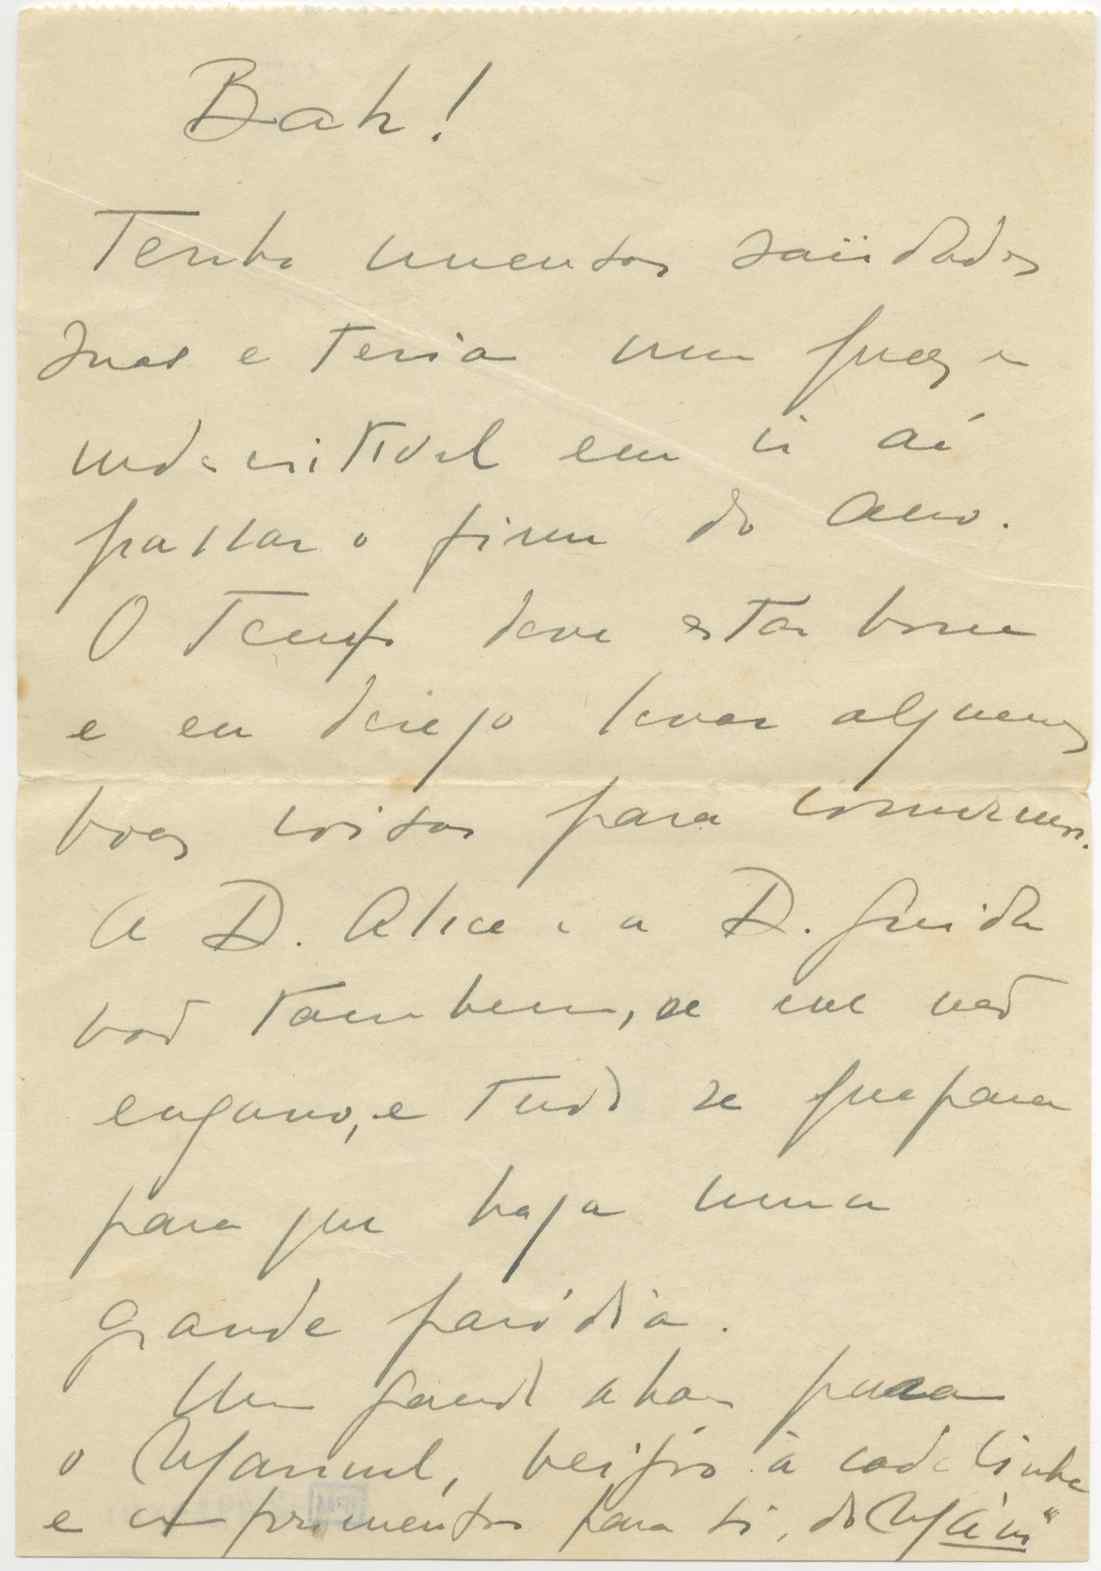 Bah!
Tenho muentas saüdades
suas e teria um prazer
indescritivel em ir aí
passar o fim do ano.
O tempo deve estar bom
e eu desejo levar algumas
boas coisas para comermos.
A D. Alice e a D. Guida
vão tambem, se me não
engano, e tudo se prepara
para que haja uma
grande paródia.
Um grande abraço para
o Manuel, beijos à cadelinha
e cumprimentos para ti, do Mário